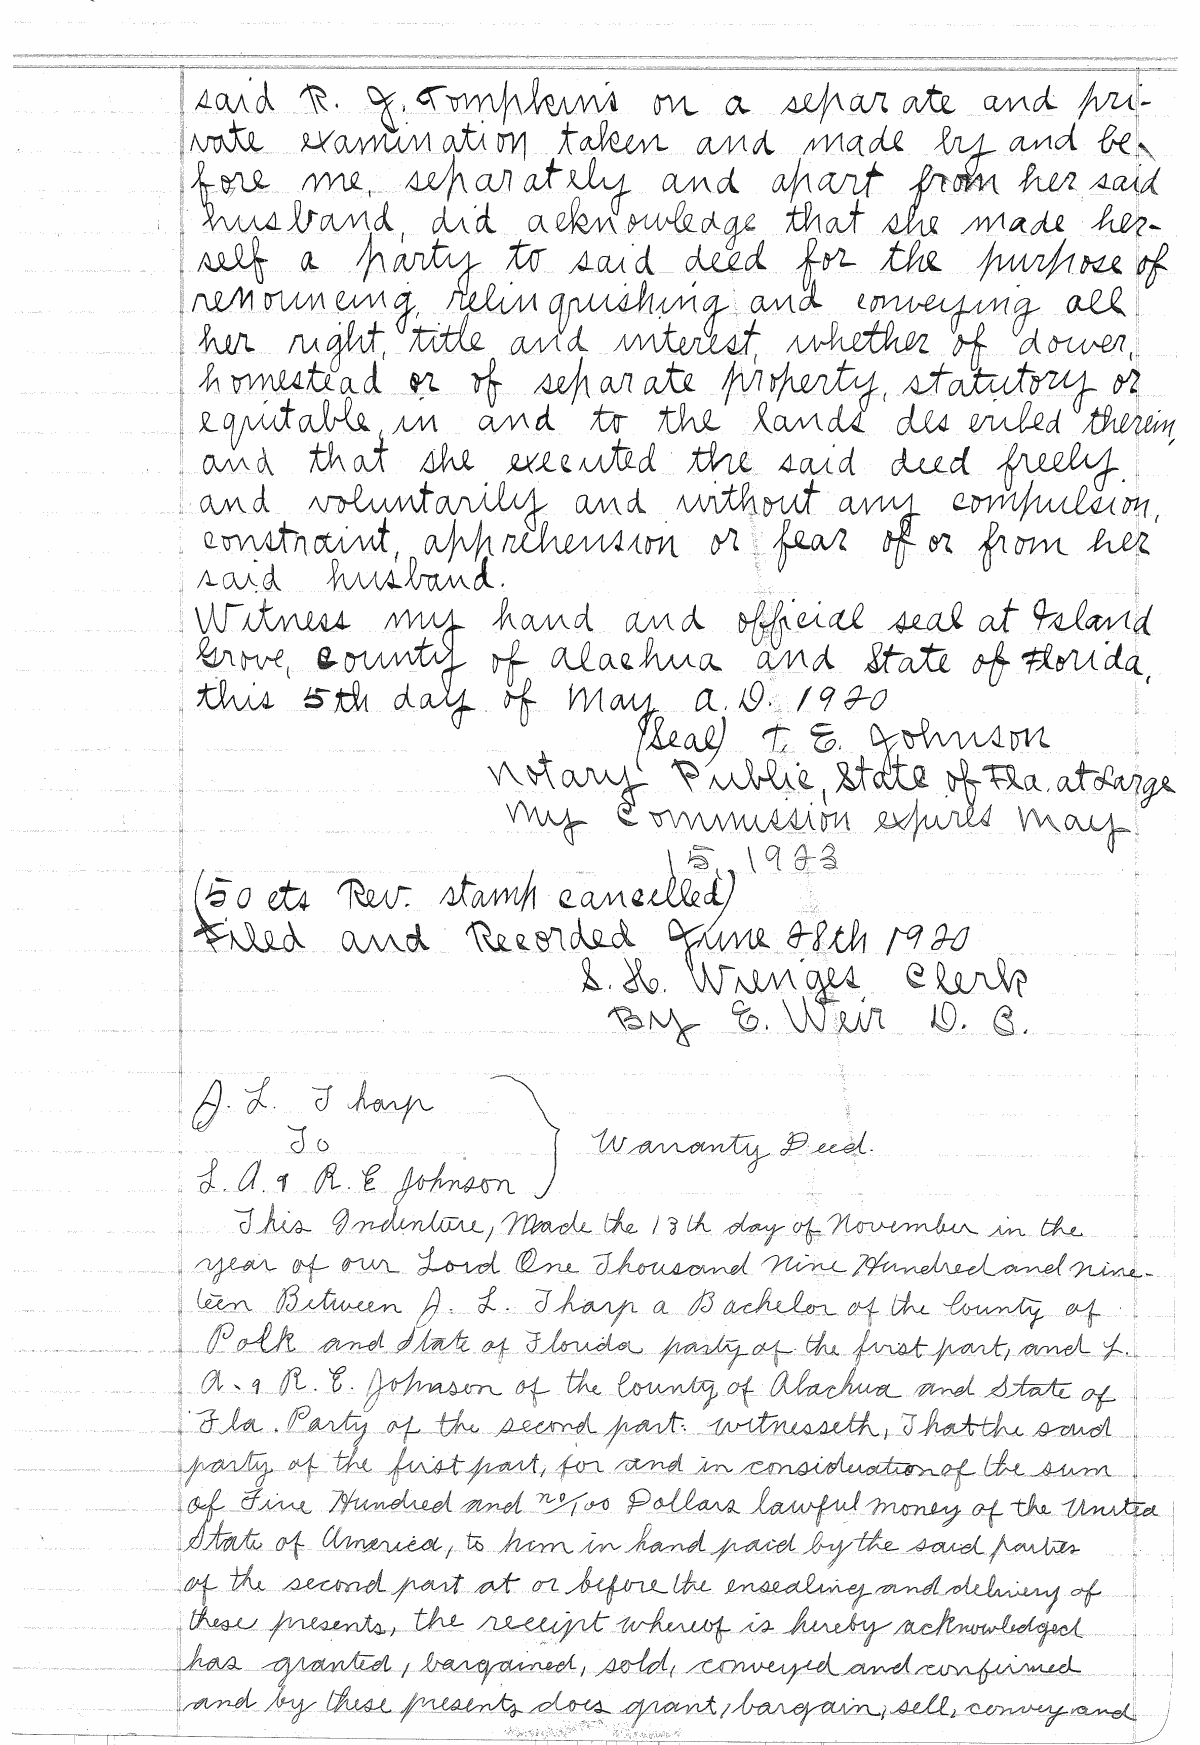 said R. J. Tompkins on a separate and pri-
vate examination taken and made by and be-
fore me, separately and apart from her said
husband, did acknowledge that she made her-
self a party to said deed for the purpose of
renouncing, relinquishing and conveying all
her right, title and interest, whether of dower,
homestead or of separate property, statutory or
equitable, in and to the lands described therein,
and that she executed the said deed freely
and voluntarily and without any compulsion,
constraint, apprehension or fear of or from her
said husband.
Witness my hand and official seal at Island
Grove, County of Alachua and State of Florida,
this 5th day of May A. D. 1920
(Seal) T. E. Johnson
Notary Public, State of Fla. at Large
My Commission expires May
15, 1923
(50 cts Rev. stamp cancelled)
Filed and Recorded June 28th 1920
S. H. Wienges Clerk
By E. Weir D. C.
J. L. Tharp
To
L. A. & R. E Johnson
Warranty Deed.
This Indenture, Made the 13th day of November in the
year of our Lord One Thousand Nine Hundred and nine-
teen Between J. L. Tharp a Bachelor of the County of
Polk and State of Florida party of the first part, and L.
A. & R. E. Johnson of the County of Alachua and State of
Fla. Party of the second part. witnesseth, That the said
party of the first part, for and in consideration of the sum
of Five Hundred and no/100 Dollars lawful money of the United
State of America, to him in hand paid by the said parties
of the second part at or before the ensealing and delivery of
these presents, the receipt whereof is hereby acknowledged
has granted, bargained, sold, conveyed and confirmed
and by these presents does grant, bargain, sell, convey and